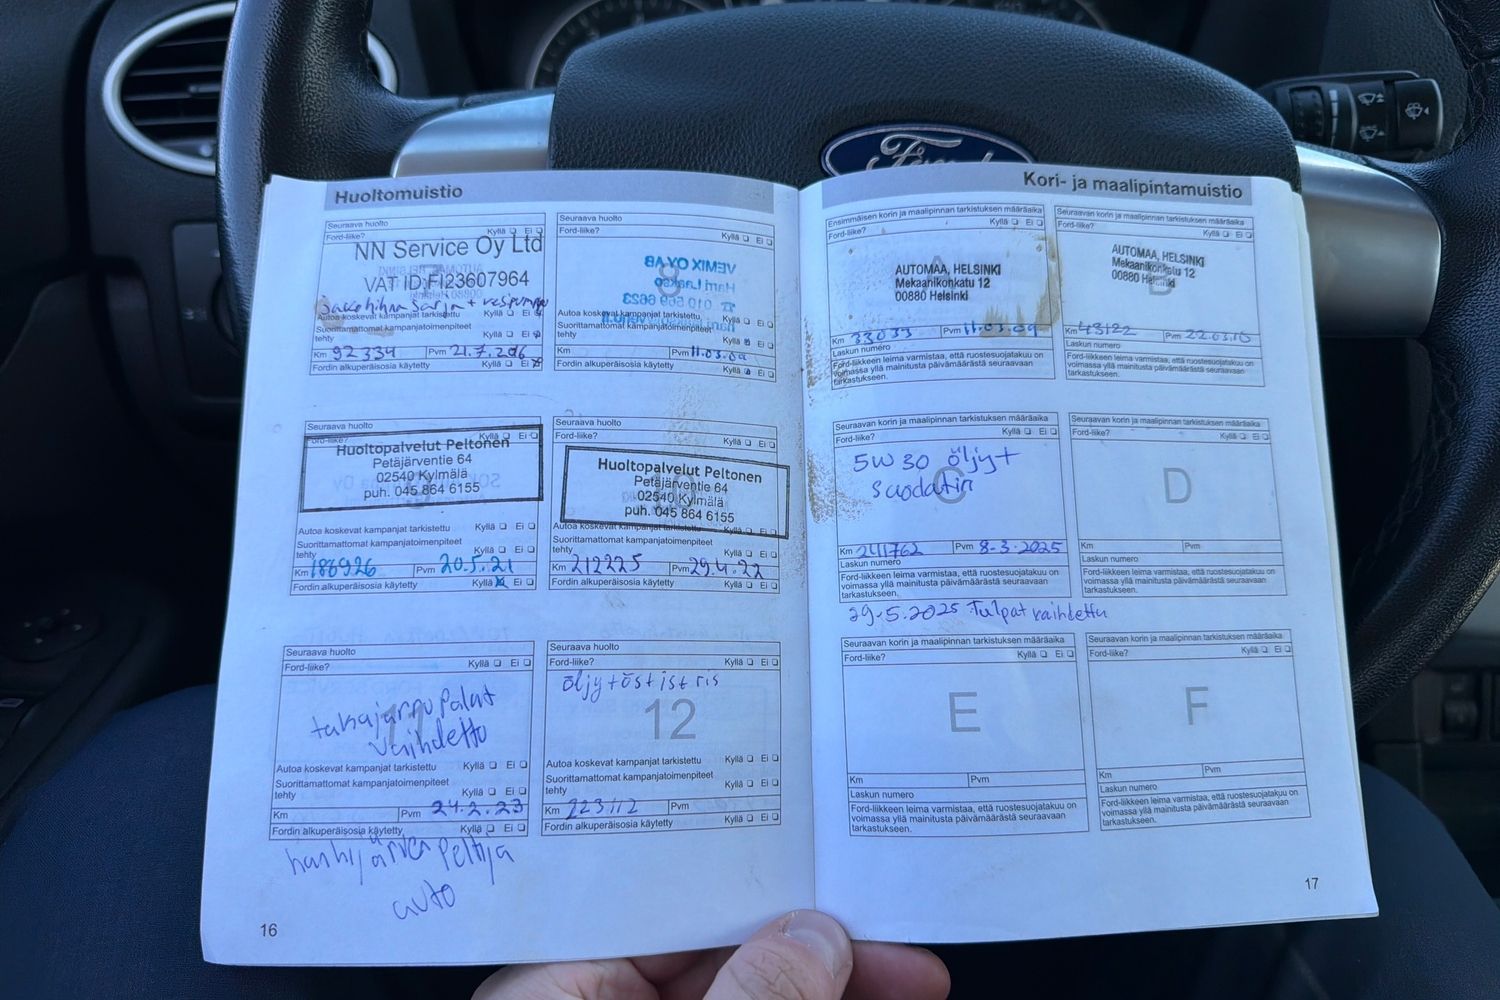 Ford
Huoltomuistio
Seuraava huolto
Ford-liike? Kyllä ❑ Ei ❑
NN Service Oy Ltd
VAT ID:FI23607964
jakohihnasarja + vesipumppu
Autoa koskevat kampanjat tarkistettu Kyllä ❑ Ei ❑
Suorittamattomat kampanjatoimenpiteet
tehty Kyllä ❑ Ei ❑
Km 92334 Pvm 21.7.2016
Fordin alkuperäisosia käytetty Kyllä ❑ Ei ❑
Seuraava huolto
Ford-liike? Kyllä ❑ Ei ❑
8
VEMIX OY AB
Harri Laakso
☎ 010 569 6623
Autoa koskevat kampanjat tarkistettu
Suorittamattomat kampanjatoimenpiteet
tehty Kyllä ❑ Ei ❑
Km Pvm 11.03.09
Fordin alkuperäisosia käytetty Kyllä ❑ Ei ❑
Seuraava huolto
Ford-liike? Kyllä ❑ Ei ❑
Huoltopalvelut Peltonen
Petäjärventie 64
02540 Kylmälä
puh. 045 864 6155
Autoa koskevat kampanjat tarkistettu Kyllä ❑ Ei ❑
Suorittamattomat kampanjatoimenpiteet
tehty Kyllä ❑ Ei ❑
Km 186926 Pvm 20.5.21
Fordin alkuperäisosia käytetty Kyllä ☒ Ei ❑
Seuraava huolto
Ford-liike? Kyllä ❑ Ei ❑
Huoltopalvelut Peltonen
Petäjärventie 64
02540 Kylmälä
puh. 045 864 6155
Autoa koskevat kampanjat tarkistettu Kyllä ❑ Ei ❑
Suorittamattomat kampanjatoimenpiteet
tehty Kyllä ❑ Ei ❑
Km 212225 Pvm 29.4.22
Fordin alkuperäisosia käytetty Kyllä ❑ Ei ❑
Seuraava huolto
Ford-liike? Kyllä ❑ Ei ❑
11
takajarru palat
vaihdettu
Autoa koskevat kampanjat tarkistettu Kyllä ❑ Ei ❑
Suorittamattomat kampanjatoimenpiteet
tehty Kyllä ❑ Ei ❑
Km Pvm 24.2.23
Fordin alkuperäisosia käytetty Kyllä ❑ Ei ❑
auto
Seuraava huolto
Ford-liike? Kyllä ❑ Ei ❑
öljyt östjstris
12
Autoa koskevat kampanjat tarkistettu Kyllä ❑ Ei ❑
Suorittamattomat kampanjatoimenpiteet
tehty Kyllä ❑ Ei ❑
Km 223112 Pvm
Fordin alkuperäisosia käytetty Kyllä ❑ Ei ❑
16
Kori- ja maalipintamuistio
Ensimmäisen korin ja maalipinnan tarkistuksen määräaika
Ford-liike? Kyllä ❑ Ei ❑
A
AUTOMAA, HELSINKI
Mekaanikonkatu 12
00880 Helsinki
Km 33033 Pvm 11.03.09
Laskun numero
Ford-liikkeen leima varmistaa, että ruostesuojatakuu on
voimassa yllä mainitusta päivämäärästä seuraavaan
tarkastukseen.
Seuraavan korin ja maalipinnan tarkistuksen määräaika
Ford-liike? Kyllä ❑ Ei ❑
B
AUTOMAA, HELSINKI
Mekaanikonkatu 12
00880 Helsinki
Km 43122 Pvm 22.03.10
Laskun numero
Ford-liikkeen leima varmistaa, että ruostesuojatakuu on
voimassa yllä mainitusta päivämäärästä seuraavaan
tarkastukseen.
Seuraavan korin ja maalipinnan tarkistuksen määräaika
Ford-liike? Kyllä ❑ Ei ❑
C
5W30 öljyt
suodatin
Km 241762 Pvm 8-3.2025
Laskun numero
Ford-liikkeen leima varmistaa, että ruostesuojatakuu on
voimassa yllä mainitusta päivämäärästä seuraavaan
tarkastukseen.
29-5.2025 Tulpat vaihdettu
Seuraavan korin ja maalipinnan tarkistuksen määräaika
Ford-liike? Kyllä ❑ Ei ❑
D
Km Pvm
Laskun numero
Ford-liikkeen leima varmistaa, että ruostesuojatakuu on
voimassa yllä mainitusta päivämäärästä seuraavaan
tarkastukseen.
Seuraavan korin ja maalipinnan tarkistuksen määräaika
Ford-liike? Kyllä ❑ Ei ❑
E
Km Pvm
Laskun numero
Ford-liikkeen leima varmistaa, että ruostesuojatakuu on
voimassa yllä mainitusta päivämäärästä seuraavaan
tarkastukseen.
Seuraavan korin ja maalipinnan tarkistuksen määräaika
Ford-liike? Kyllä ❑ Ei ❑
F
Km Pvm
Laskun numero
Ford-liikkeen leima varmistaa, että ruostesuojatakuu on
voimassa yllä mainitusta päivämäärästä seuraavaan
tarkastukseen.
17